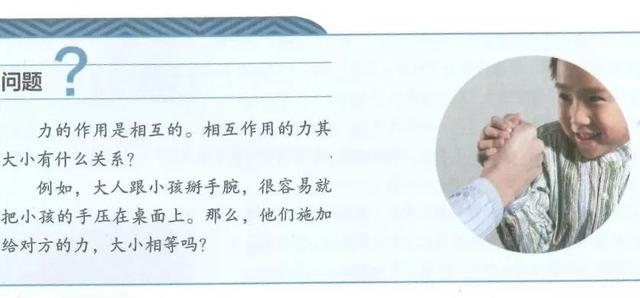 问题?
力的作用是相互的。相互作用的力其
大小有什么关系?
例如，大人跟小孩掰手腕，很容易就
把小孩的手压在桌面上。那么，他们施加
给对方的力，大小相等吗?